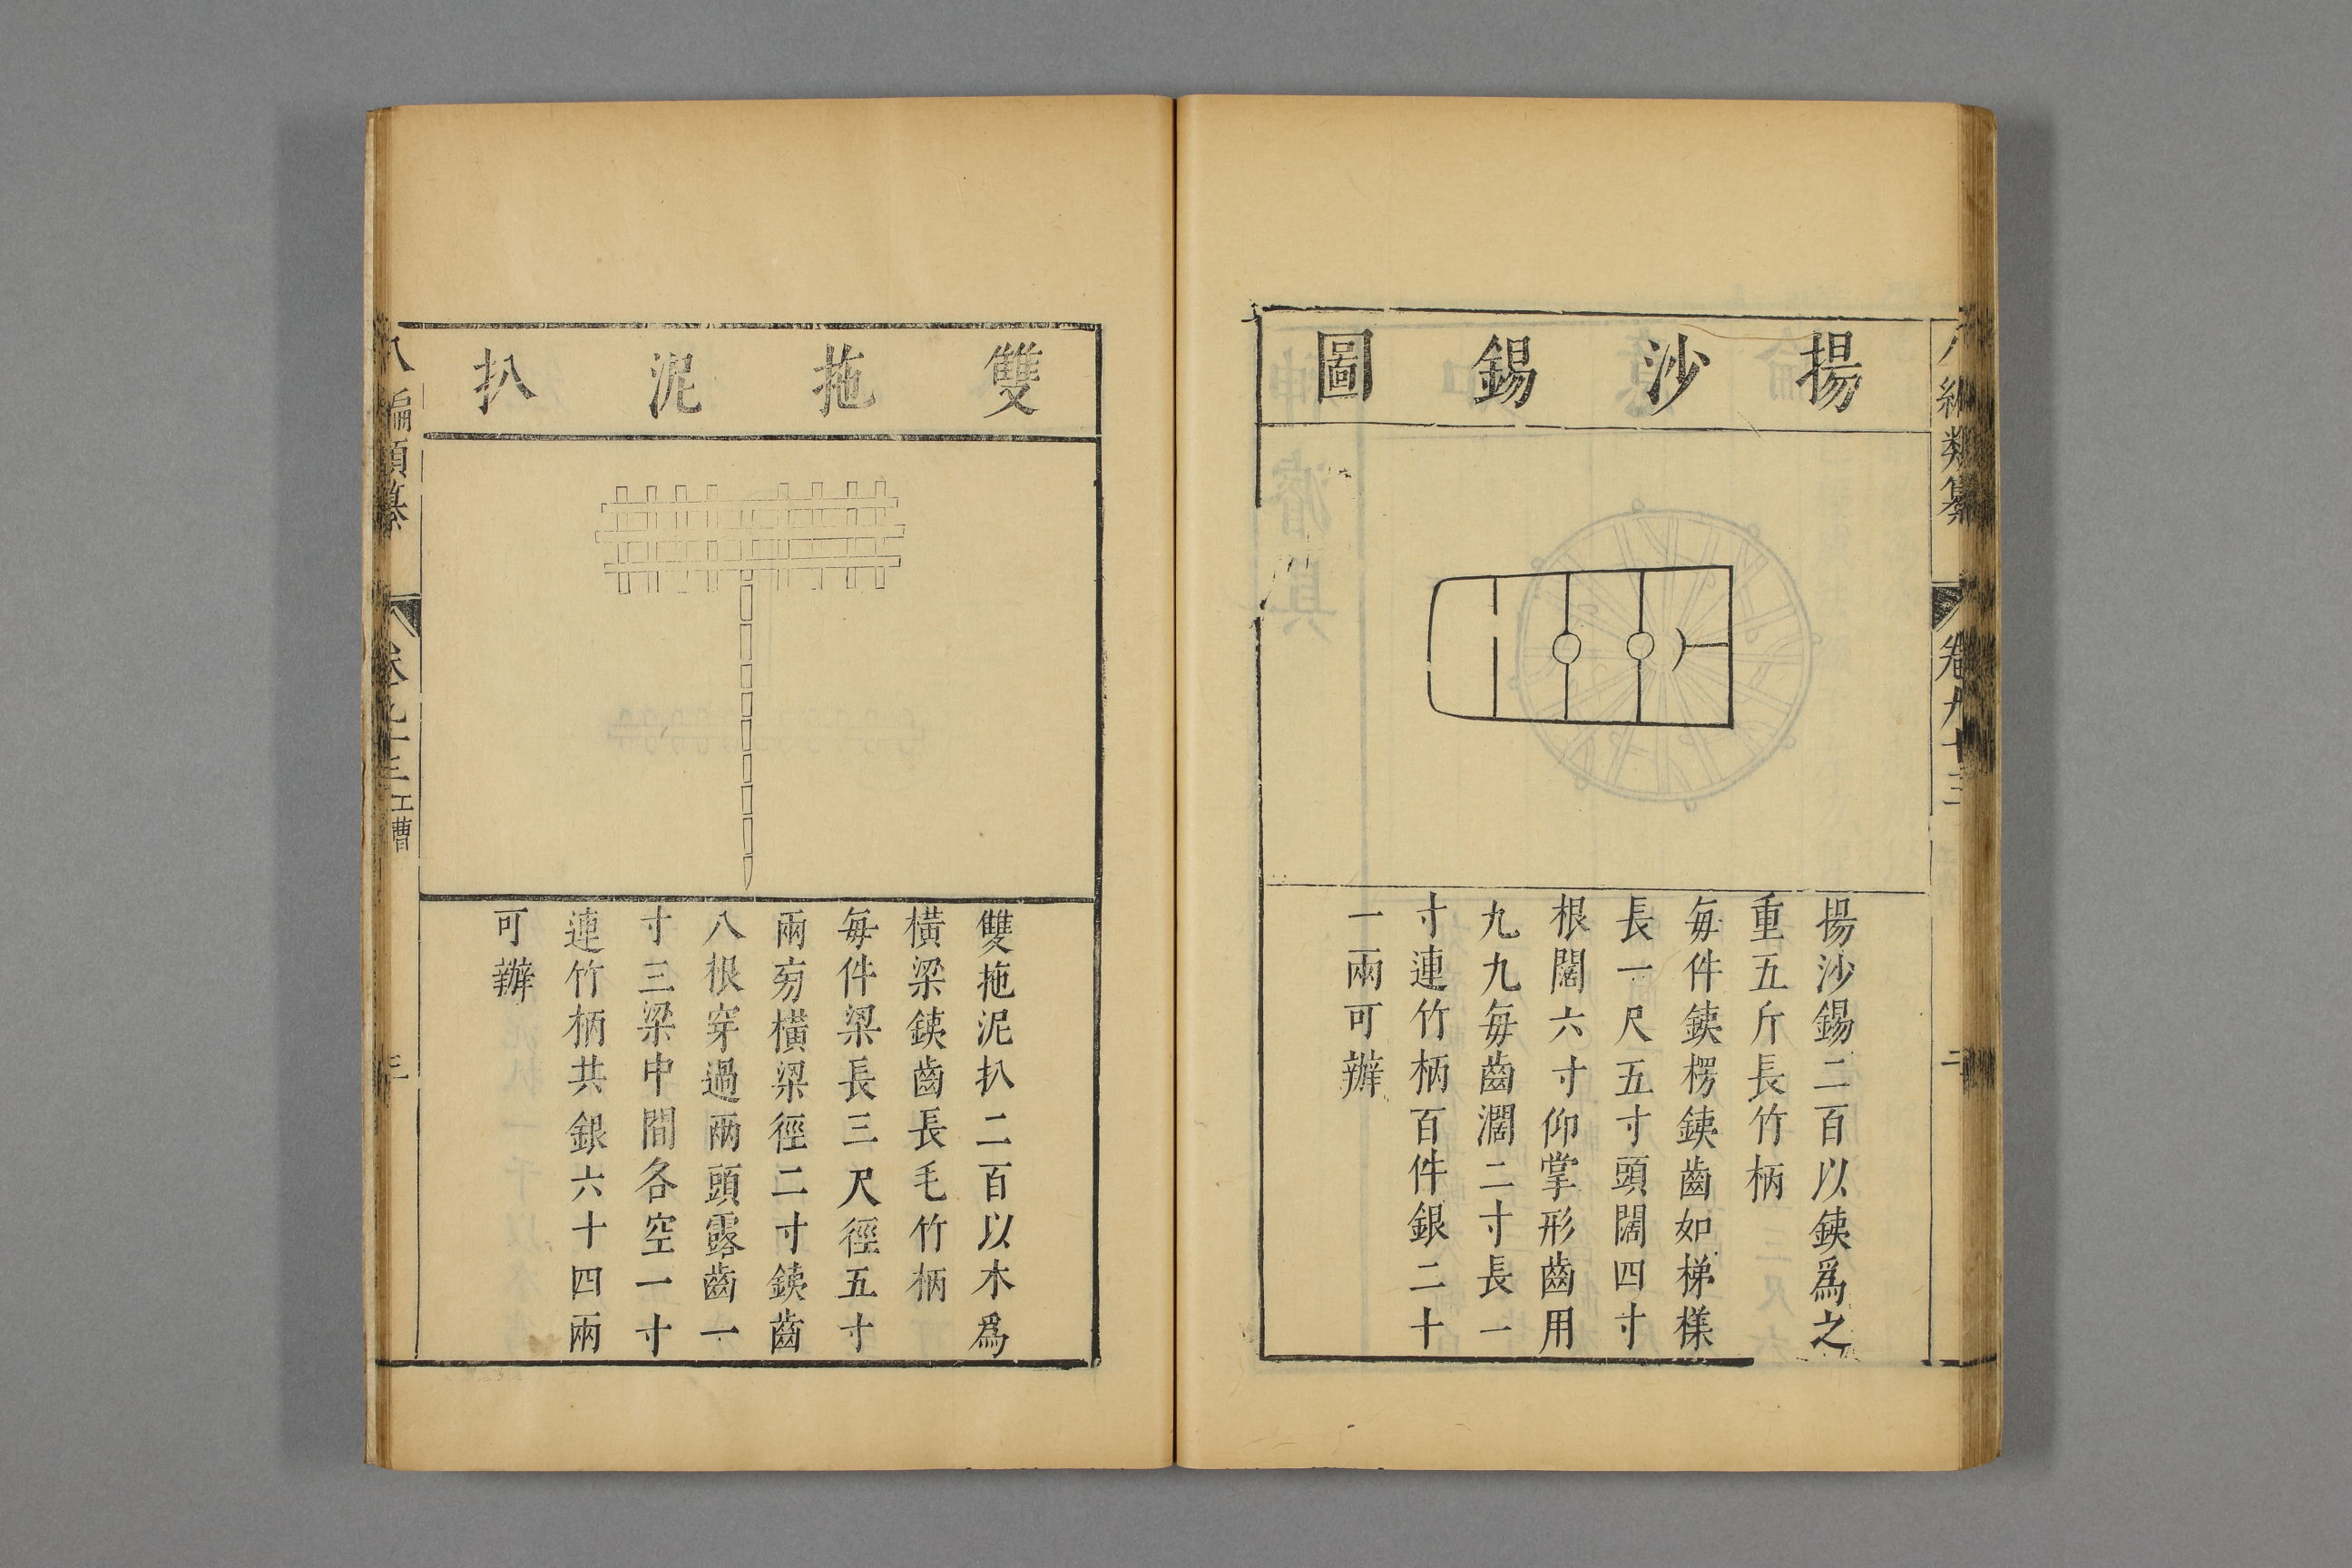 揚沙錫圖
揚沙錫二百以鐵爲之
重五斤長竹柄
每件鐵楞鐵齒如梯樣
長一尺五寸頭闊四寸
根闊六寸仰掌形齒用
九九每齒濶二寸長一
寸連竹柄百件銀二十
一兩可辦
八編類纂
卷九十三
二
雙拖泥扒
雙拖泥扒二百以木爲
橫梁鐵齒長毛竹柄
每件梁長三尺徑五寸
兩旁橫梁徑二寸鐵齒
八根穿過兩頭露齒一
寸三梁中間各空一寸
連竹柄共銀六十四兩
可辦
八編類纂
卷九十三
工曹
三